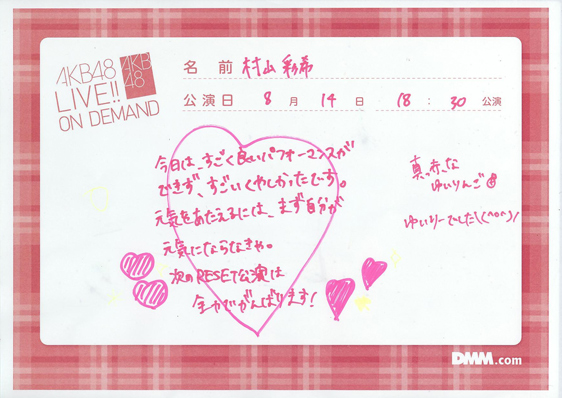 AKB48
LIVE!!
ON DEMAND
AKB
48
名前 村山彩希
公演日 8月14日 18:30公演
今日は、すごく良いパフォーマンスが
できず、すごいくやしかったです。
元気をあたえるには、まず自分が
元気にならなきゃ。
次のRESET公演は
全力でがんばります!
真っ赤な
ゆいりんご
ゆいりーでした\(^o^)/
DMM.com